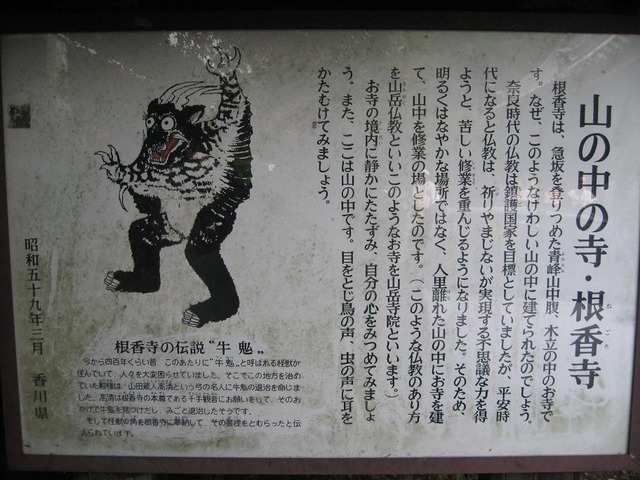 山の中の寺・根香寺
ねごろ
根香寺は、急坂を登りつめた青峰山中腹、木立の中のお寺で
す。なぜ、このようなけわしい山の中に建てられたのでしょう。
奈良時代の仏教は鎮護国家を目標としていましたが、平安時
代になると仏教は、祈りやまじないが実現する不思議な力を得
ようと、苦しい修業を重んじるようになりました。そのため、
明るくはなやかな場所ではなく、人里離れた山の中にお寺を建
て、山中を修業の場としたのです。（このような仏教のあり方
を山岳仏教といい、このようなお寺を山岳寺院といいます。）
お寺の境内に静かにたたずみ、自分の心をみつめてみましょ
う。また、ここは山の中です。目をとじ鳥の声、虫の声に耳を
かたむけてみましょう。
根香寺の伝説“牛鬼„
今から四百年くらい昔、このあたりに“牛鬼„と呼ばれる怪獣が
住んでいて、人々を大変困らせていました。そこでこの地方を治め
ていた殿様は、山田蔵人高清という弓の名人に牛鬼の退治を命じま
した。高清は根香寺の本尊である千手観音にお願いをして、そのお
かげで牛鬼を見つけだし、みごと退治したそうです。
そして怪獣の角を根香寺に奉納して、その菩提をとむらったと伝
えられています。
昭和五十九年三月　香川県